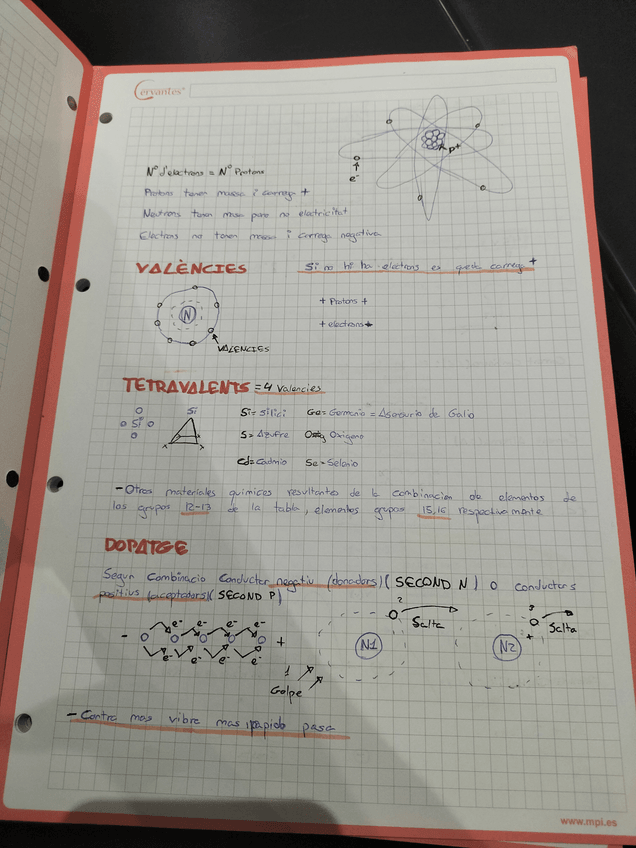 Cervantes
p+
e-
Nº d'electrons = Nº Protons
Protons tenen massa i carrega +
Neutrons tenen masa pero no electricitat
Electrons no tenen massa i carrega negativa
VALÈNCIES
Si no hi ha electrons es queda carrega +
N
+ Protons +
+ electrons
VALENCIES
TETRAVALENTS = 4 Valencies
Si
Si
Si = Silici Ge = Germanio = Aserurio de Galio
S = Azufre Oxigeno
Cd = Cadmio Se = Selenio
- Otros materiales quimices resultantes de la combinacion de elementos de
los grupos 12-13 de la tabla, elementos grupos 15,16 respectivamente
DOPATGE
Segun Combinacio Conductor negatiu (donadors) (SECOND N) O conductors
positius (acceptadors) (SECOND P)
- e- e- e- e- +
e- e- e- e-
2
Salta
N1
1
Golpe
3
+
Salta
N2
- Contra mas vibre mas rapido pasa
www.mpi.es